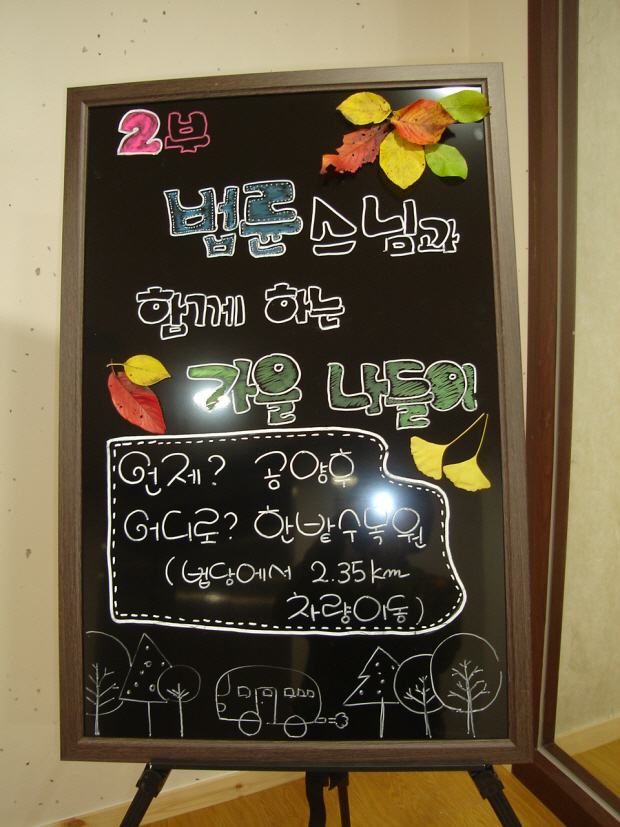 2부
법륜스님과
함께 하는
가을 나들이
언제? 공양후
어디로? 한밭수목원
(법당에서 2.35km
차량이동)